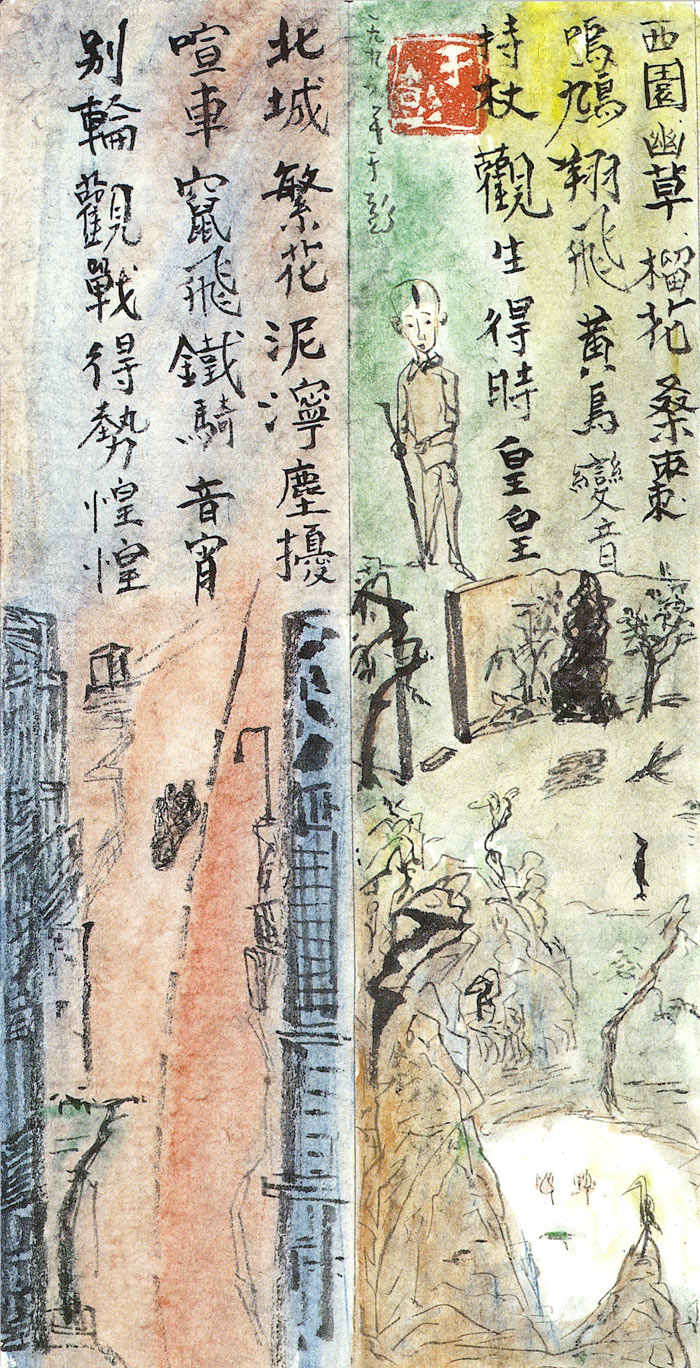 西園幽草榴花桑棗
鳴鳩翔飛黃鳥變音
持杖觀生得時皇皇
于彭
一九九年于彭
北城繁花泥濘塵擾
喧車竄飛鐵騎音宵
別輪觀戰得勢惶惶